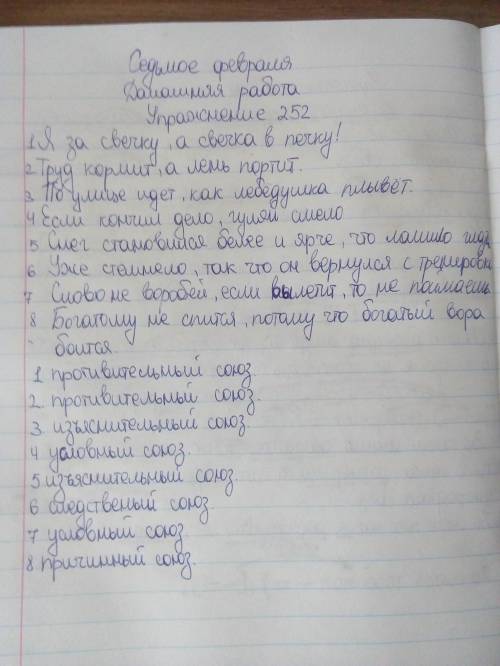 Седьмое февраля
Домашняя работа
Упражнение 252
1 Я за свечку, а свечка в печку!
2 Труд кормит, а лень портит.
3 По улице идет, как лебедушка плывёт.
4 Если кончил дело, гуляй смело
5 Снег становился белее и ярче, что ломило глаза
6 Уже стемнело, так что он вернулся с тренировки
7 Слово не воробей, если вылетит, то не поймаешь
8 Богатому не спится, потому что богатый вора
боится.
1 противительный союз.
2. противительный союз.
3 изъяснительный союз.
4 условный союз.
5 изъяснительный союз.
6 следственый союз
7 условный союз
8 причинный союз.